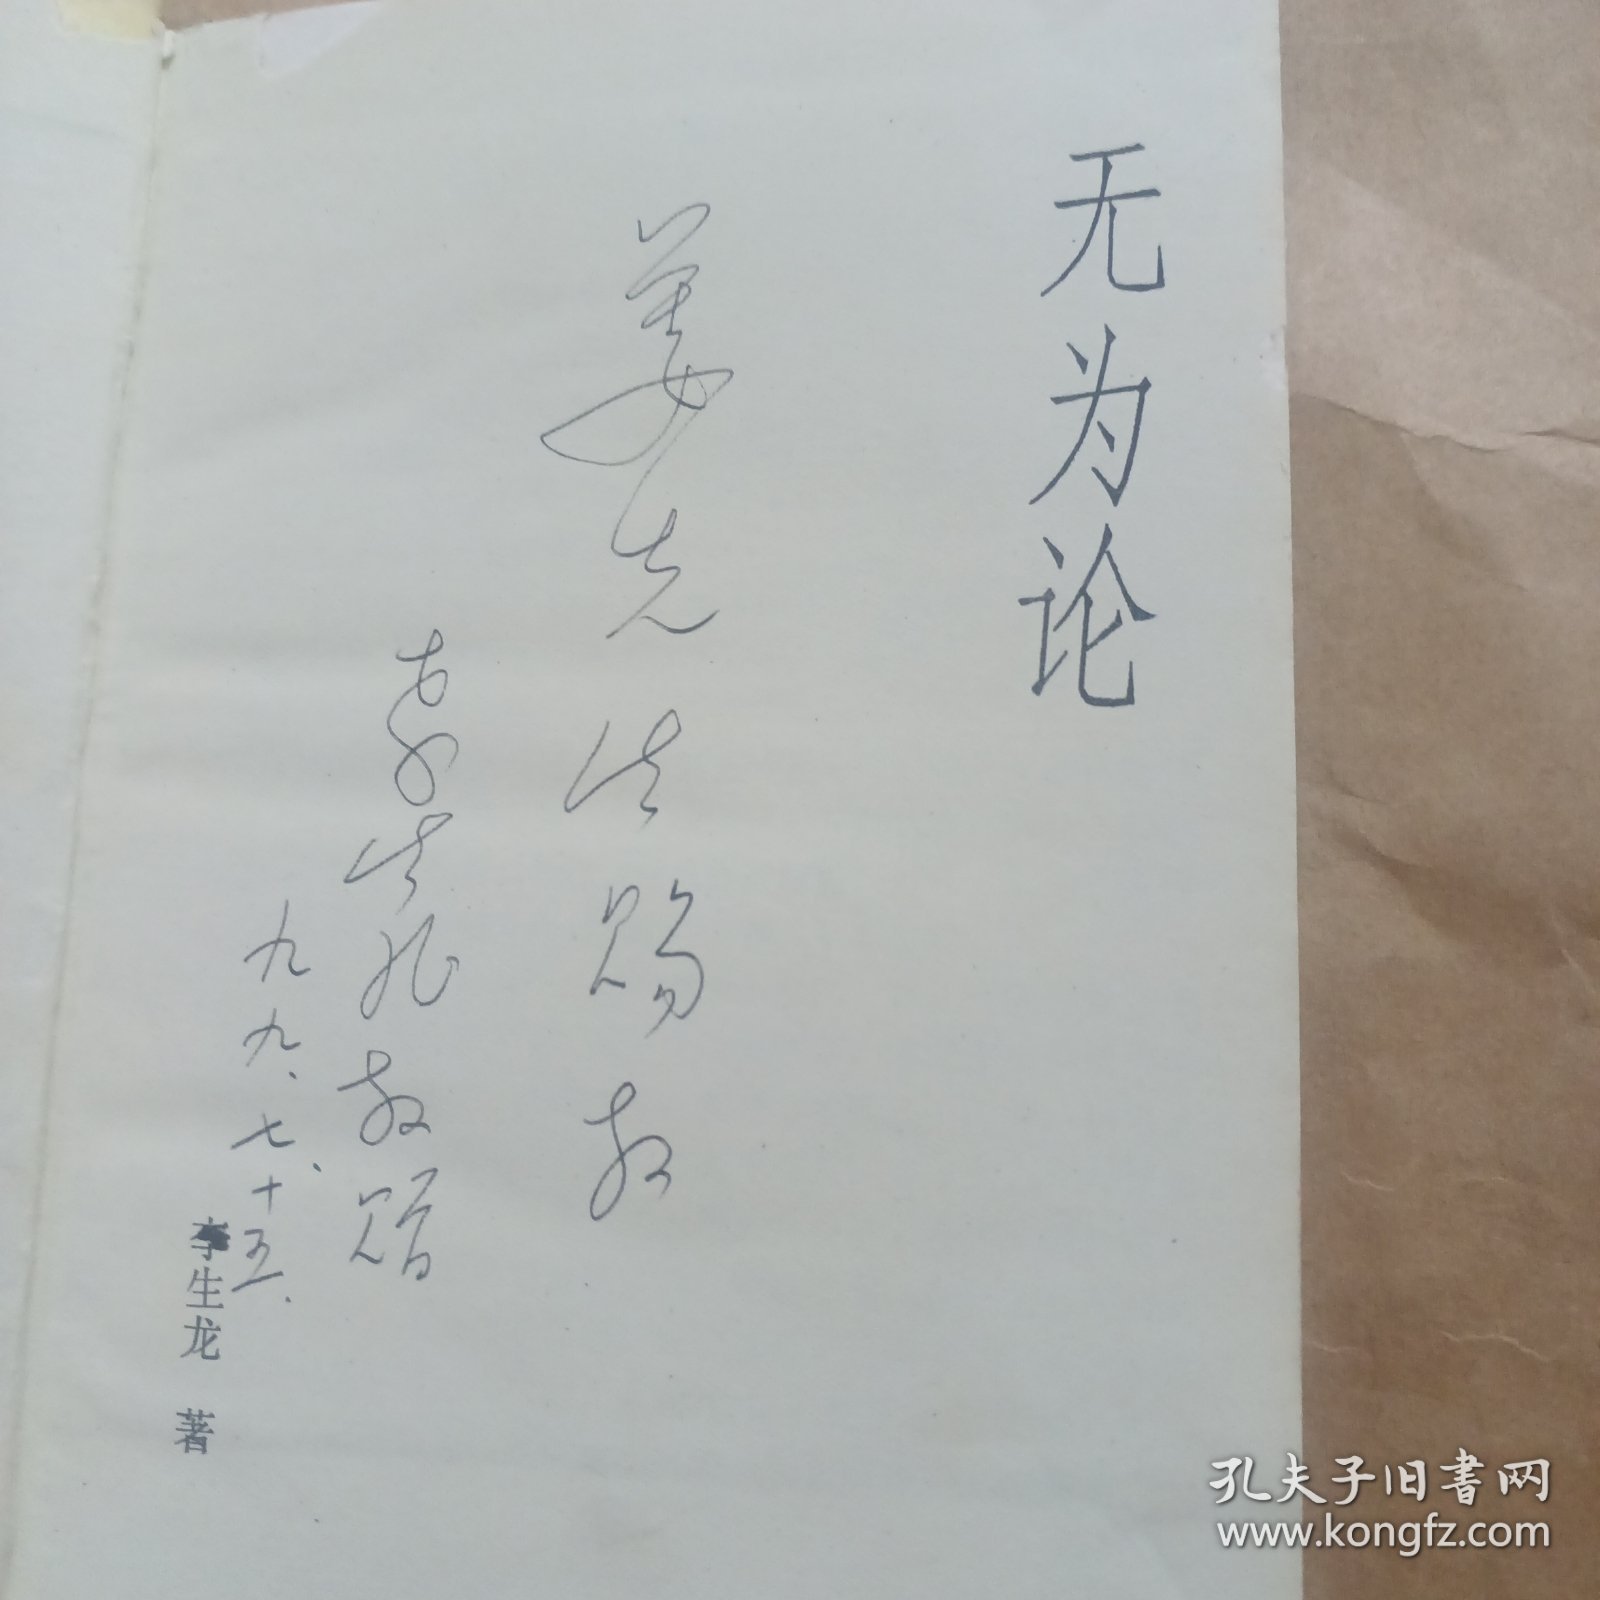 无为论
姜先生赐教
李生龙敬赠
九九、七、十五、
李生龙 著
孔夫子旧书网
www.kongfz.com